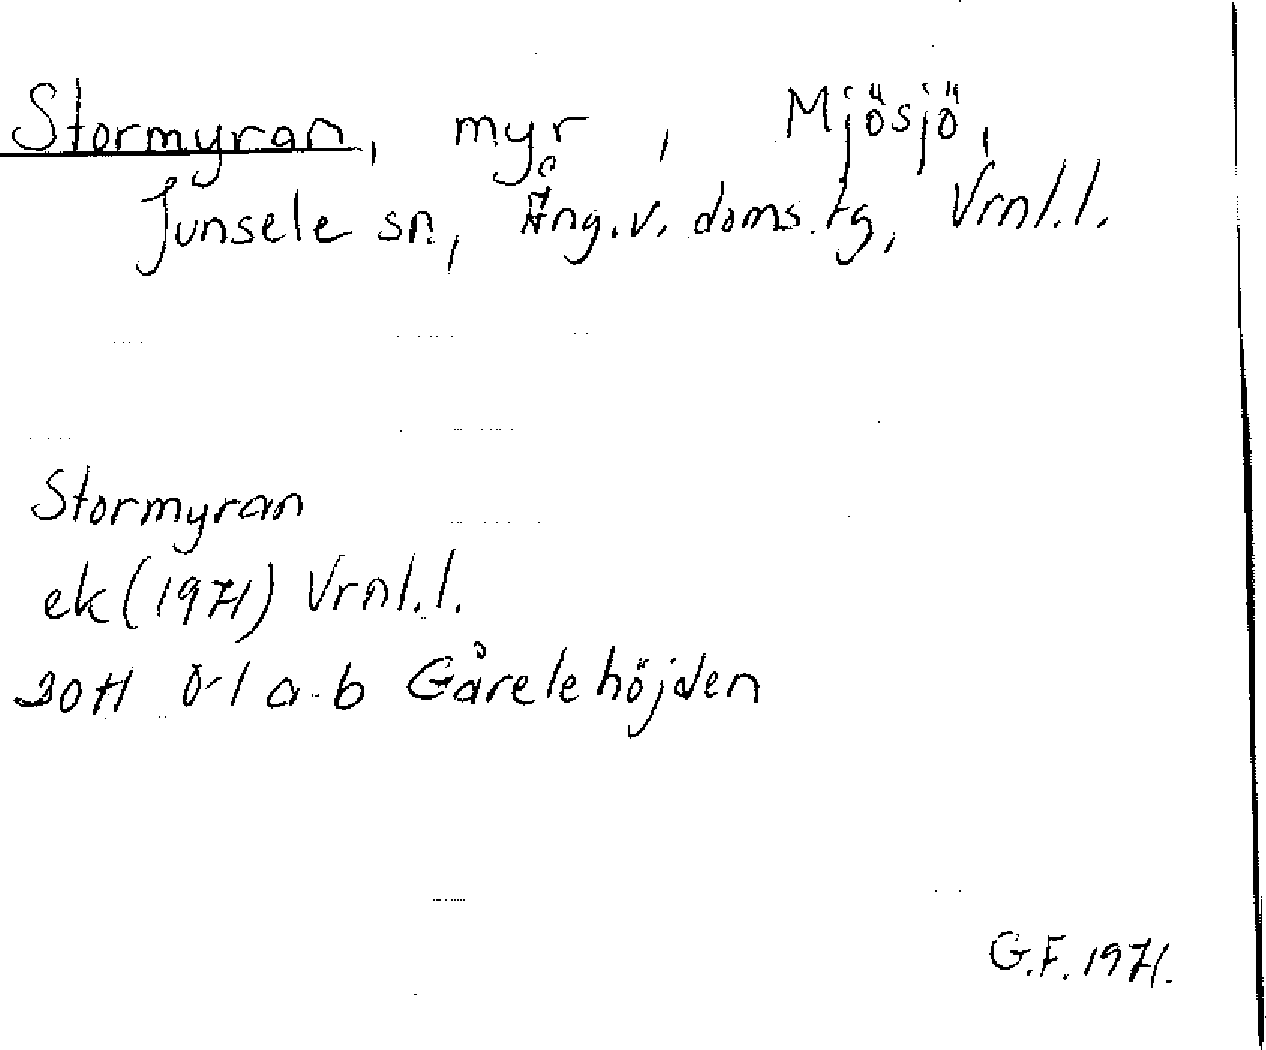 Stormyran, myr, Mjösjö,
Junsele sn, Ång.v. doms.tg, Vrnl.l.
Stormyran
ek (1971) Vrnl.l.
20H 0-1 a-b Gårelehöjden
G.F. 1971.